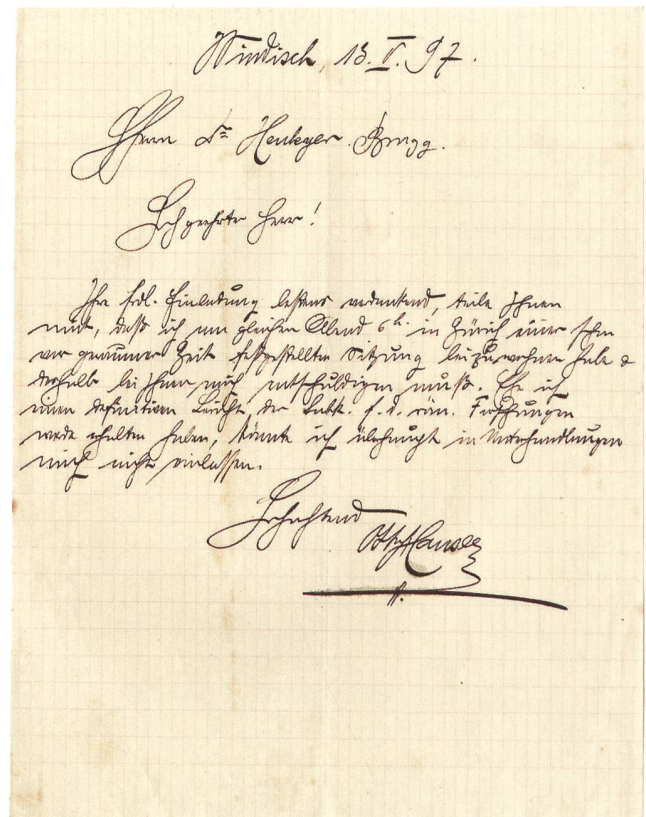 Windisch, 13. V. 97.
Herrn Dr Heuberger. Brugg.
Hochgeehrter Herr!
Ihre frdl. Einladung bestens verdankend, teile Ihnen
mit, daß ich am gleichen Abend 6 h. in Zürich einer schon
vor geraumer Zeit festgestellten Sitzung beizuwohnen habe &
deshalb bei Ihnen mich entschuldigen muß. Ehe ich
einen definitiven Bericht, der Subk. f. d. röm. Forschungen
werde erhalten haben, könnte ich überhaupt in Unterhandlungen
mich nicht einlassen.
Hochachtend
Otto Hauser